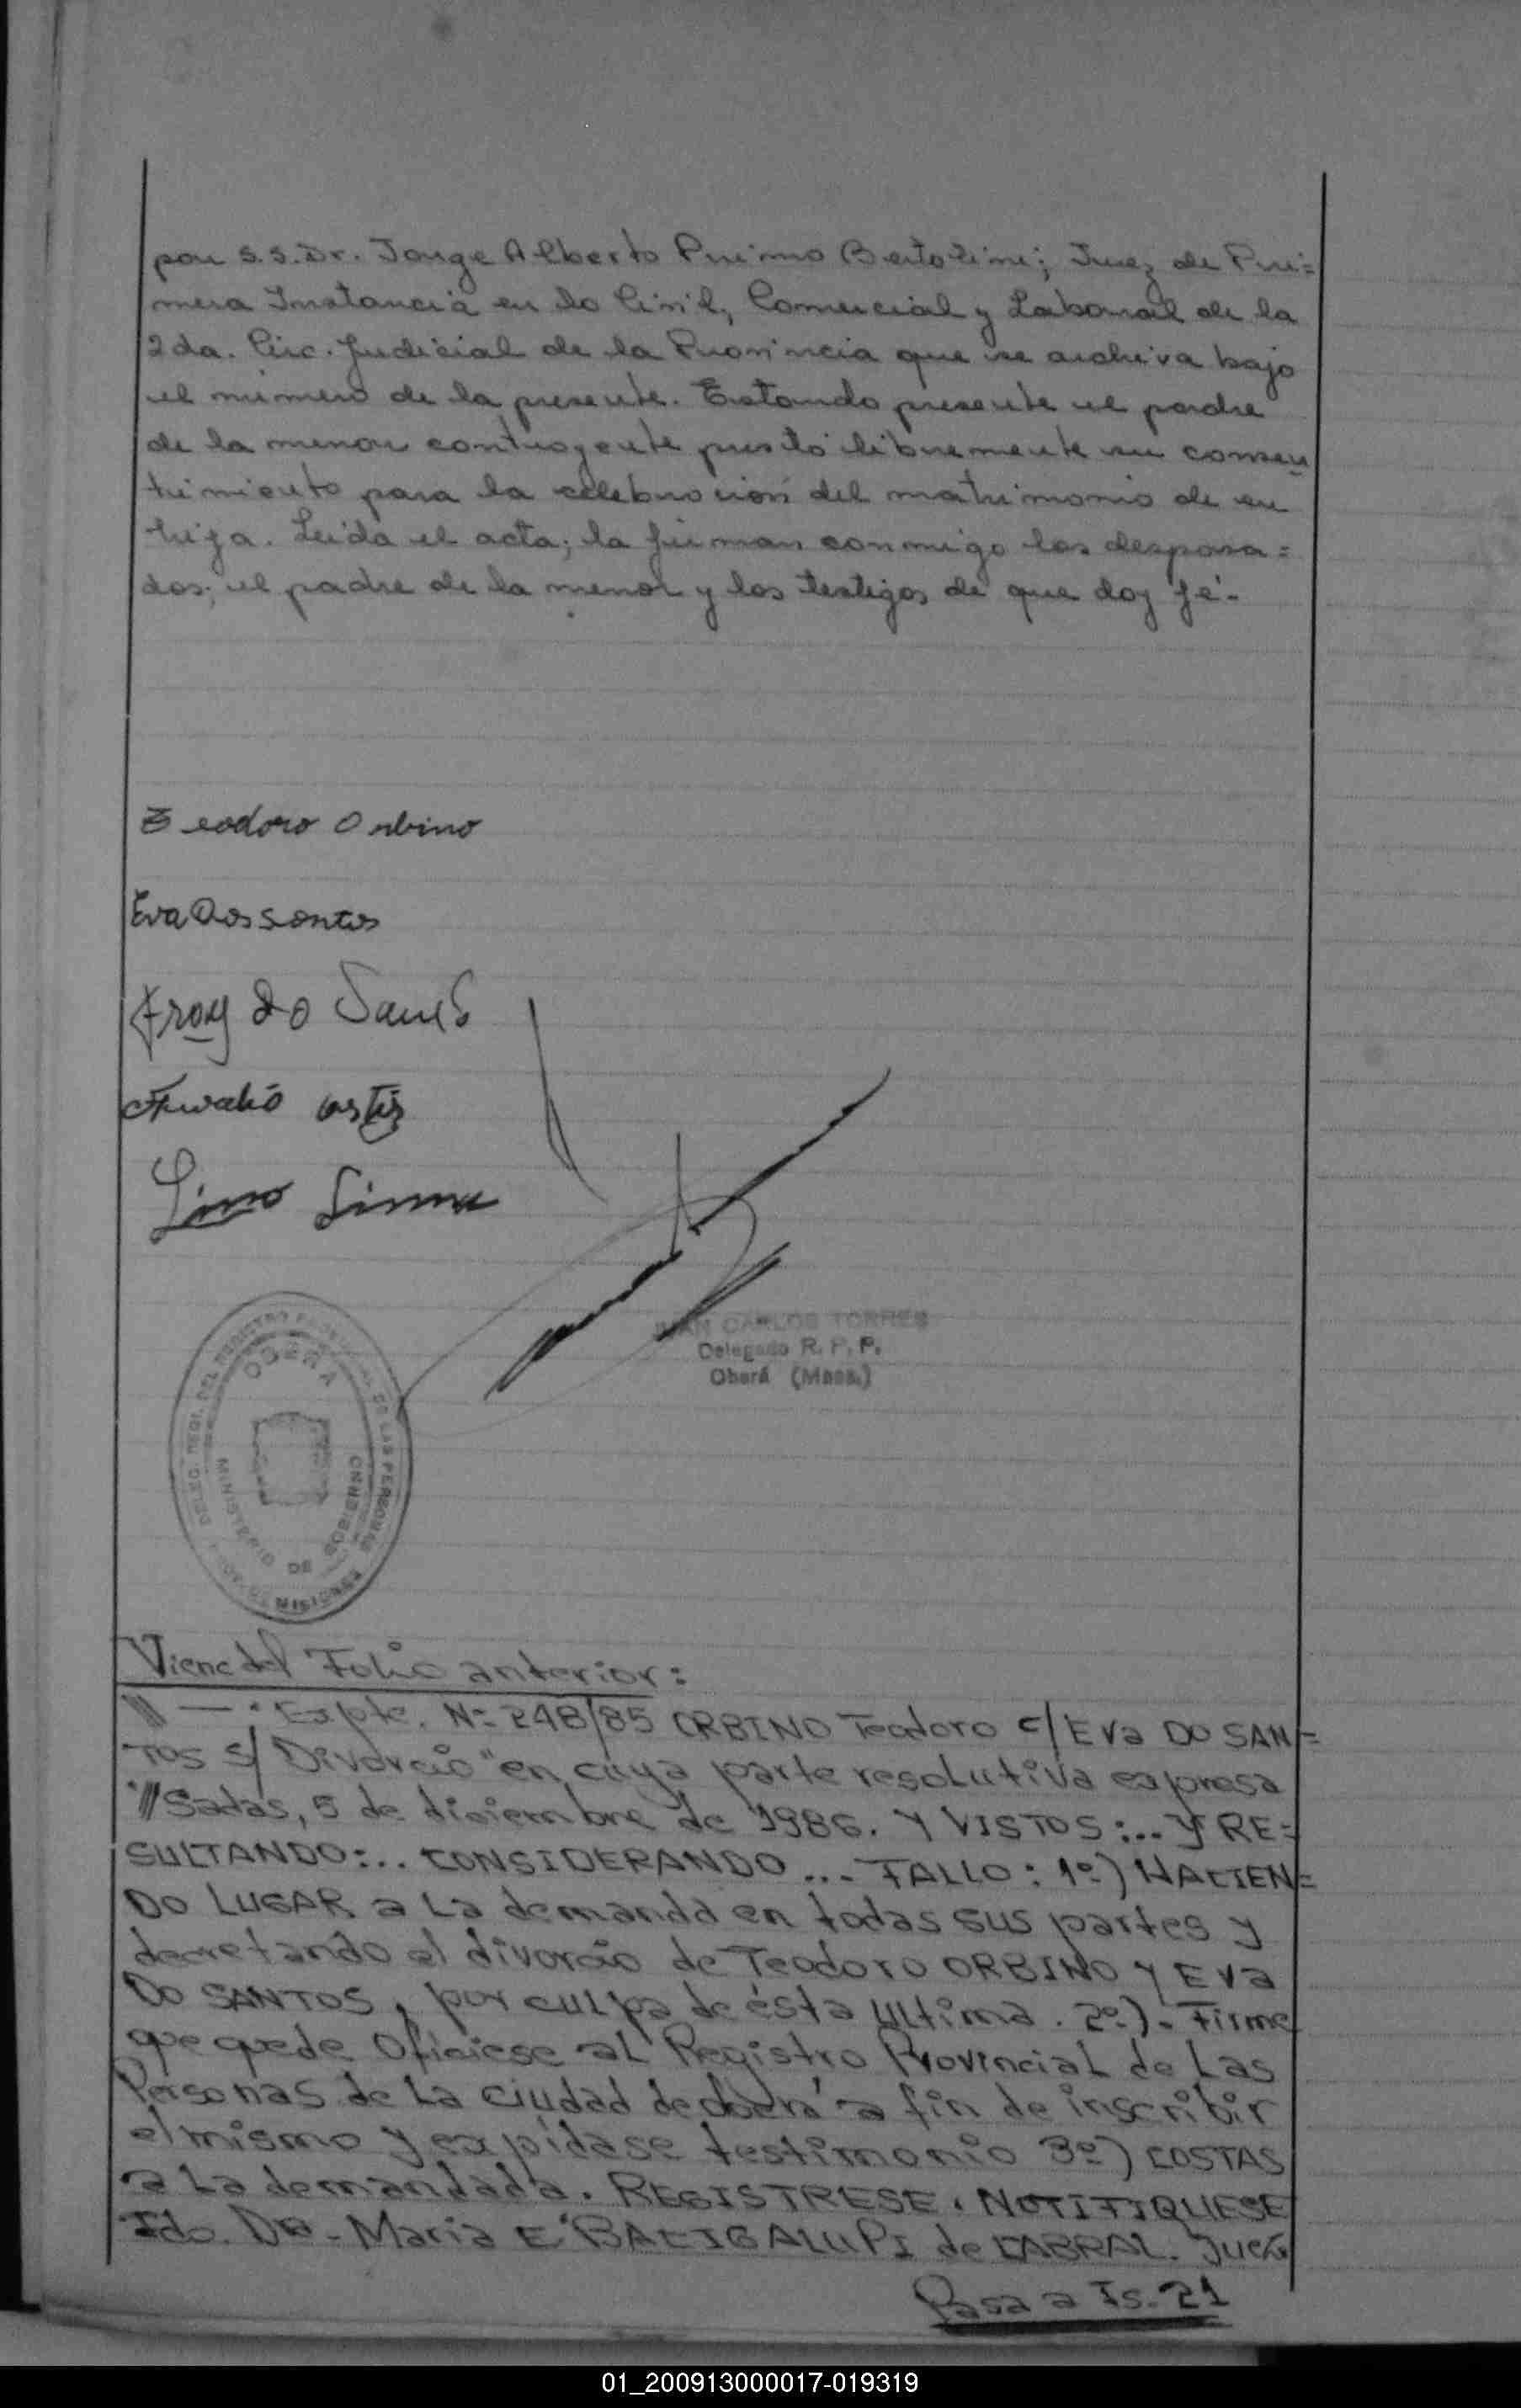 por S.S. Dr. Jorge Alberto Primo Bertolini; Juez de Pri=
mera Instancia en lo Civil, Comercial y Laboral de la
2da. Circ. Judicial de la Provincia que se archiva bajo
el número de la presente. Estando presente el padre
de la menor contrayente prestó libremente su consen
timiento para la celebración del matrimonio de su
hija. Leída el acta; la firman conmigo los desposa=
dos; el padre de la menor y los testigos de que doy fé.-
Teodoro Orbino
Eva Dos santos
do
Lino
JUAN CARLOS TORRES
Delegado R. P. P.
Oberá (Mnes.)
DELEG. REGI. DEL REGISTRO PROVINCIAL DE LAS PERSONAS
OBERA
MINISTERIO DE GOBIERNO
PROV. DE MISIONES
Viene del Folio anterior:
"Expte. Nº 248/85 ORBINO Teodoro c/ EVa DO SAN=
TOS S/ Divorcio" en cuya parte resolutiva expresa
"///Sadas, 5 de diciembre de 1986. Y VISTOS:.. Y RE=
SULTANDO:.. CONSIDERANDO... FALLO: 1º) HACIEN=
DO LUGAR a La demanda en todas sus partes y
decretando el divorcio de Teodoro ORBINO Y EVa
DO SANTOS, por culpa de ésta última. 2º).- Firme
que quede Ofíciese al Registro Provincial de Las
Personas de La ciudad de oberá a fin de inscribir
el mismo y expídase testimonio 3º) COSTAS
a La demandada. REGISTRESE. NOTIFIQUESE
Fdo. Dra- Maria E BACIGALUPI de CABRAL. Juez
Pasa a Fs. 21
01_200913000017-019319